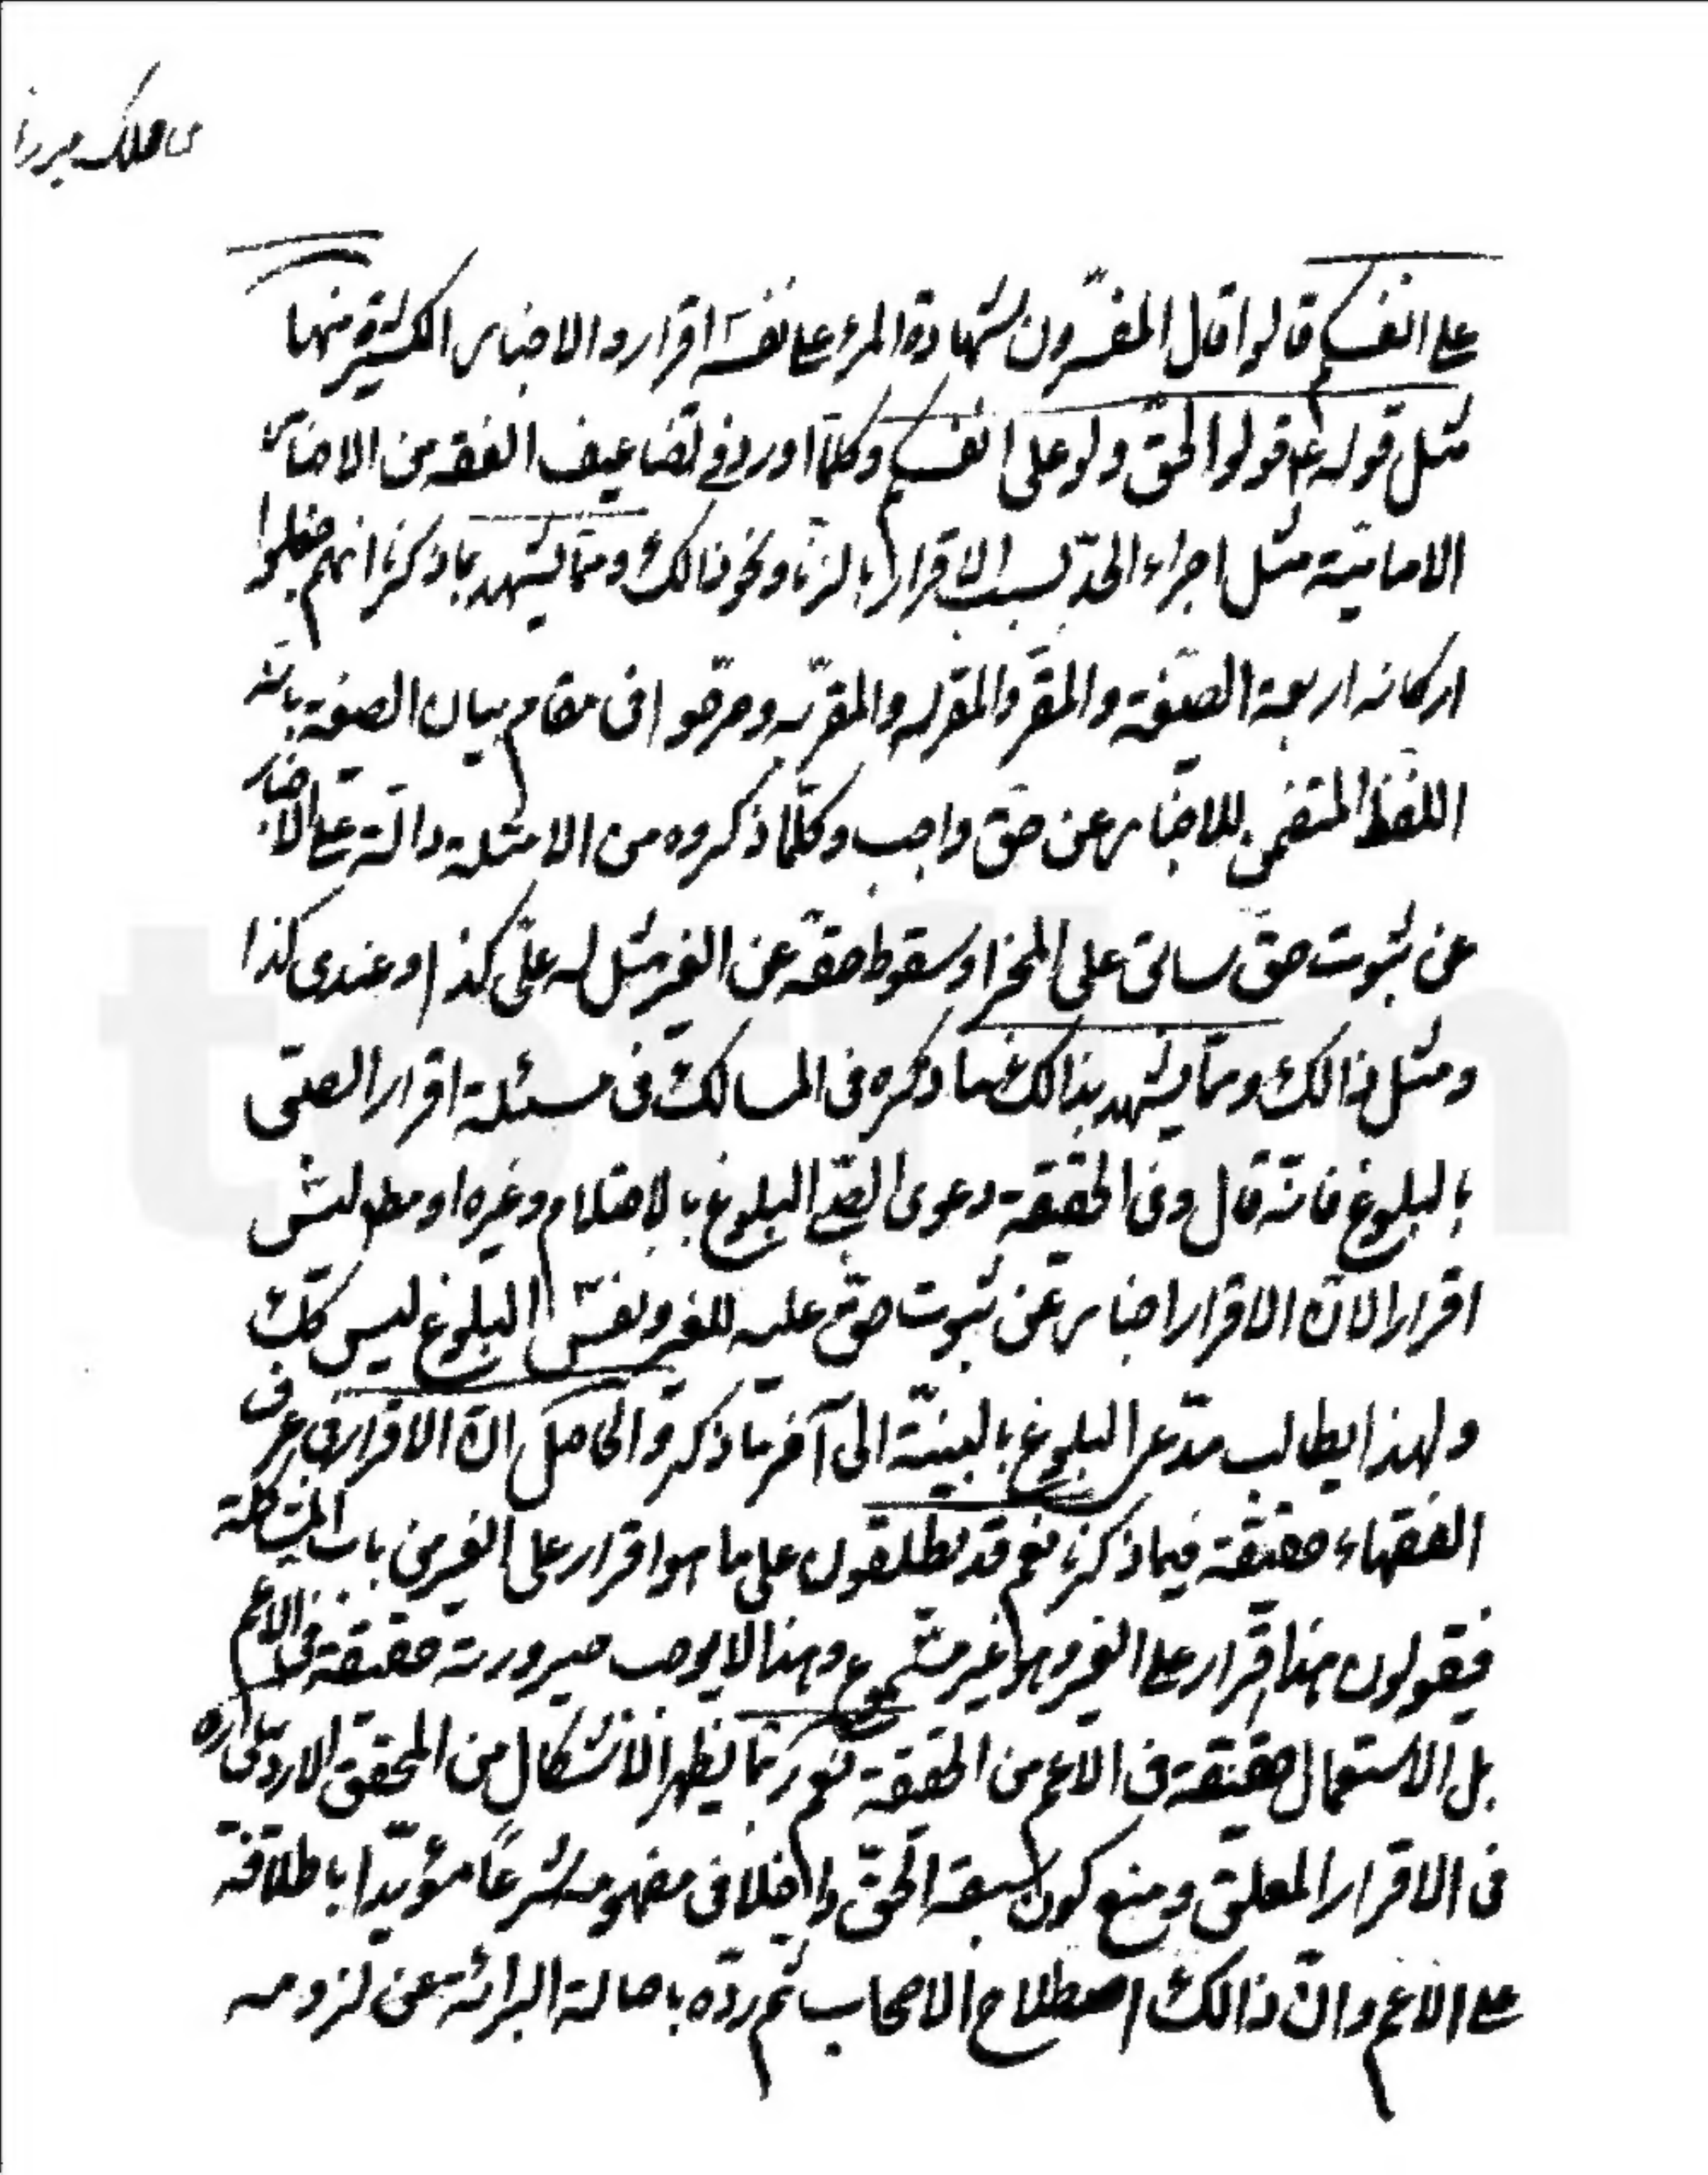 على انفسكم قالوا قال المفسّرون شهادة المرء على نفسه اقراره والاخبار الكثيرة منها
مثل قوله ع قولوا الحقّ ولو على انفسكم وكلّما اورد فى تضاعيف الفقه من الاخبار
الاماميّة مثل اجراء الحدّ بسبب الاقرار بالزنا ونحو ذالك وممّا يشهد بما ذكرنا انهم جعلوا
اركانه اربعة الصيّغة والمقرّ والمقرله والمقرّ به وصرّحوا فى مقام بيان الصيغة بانّه
اللفظ المتضمن للاخبار عن حقّ واجب وكلّما ذكروه من الامثلة دالّة على الاخبار
عن ثبوت حقّ سابق على المخبر او سقوط حقّه عن الغير مثل له علىّ كذا او عندى كذا
ومثل ذالك وممّا يشهد بذالك ما ذكره فى المسالك فى مسئلة اقرار الصبّى
بالبلوغ فانّه قال وفى الحقيقة دعوى الصبّى البلوغ بالاحتلام وغيره او مط ليس
اقرارا لانّ الاقرار اخبار عن ثبوت حقّ عليه للغير ونفس البلوغ ليس كك
ولهذا يطالب مدّعى البلوغ بالبيّنة الى آخر ما ذكره والحاصل انّ الاقرار فى عرف
الفقهاء حقيقة فيما ذكرنا نعم قد يطلقون على ما هو اقرار على الغير من باب المشاكلة
فيقولون هذا اقرار على الغير وهو غير مسموع وهذا لا يوجب صيرورته حقيقة فى الاعم
بل الاستعمال حقيقة فى الاعم من الحقيقة نعم ربّما يظهر الاشكال من المحقق الاردبيلى ره
فى الاقرار المعلق ومنع كون سبقة الحقّ داخلا فى مفهومه شرعاً مؤيّدا باطلاقه
على الاعم وانّ ذالك اصطلاح الاصحاب ثم ردّه باصالة البرائة عن لزومه